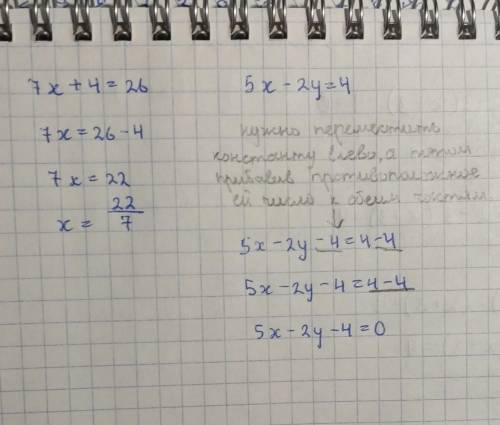 7x + 4 = 26
7x = 26 - 4
7x = 22
x = 22/7
5x - 2y = 4
нужно переместить
константу влево, а потом
прибавив противоположное
ей число к обеим частям
↓
5x - 2y - 4 = 4 - 4
5x - 2y - 4 = 4 - 4
5x - 2y - 4 = 0